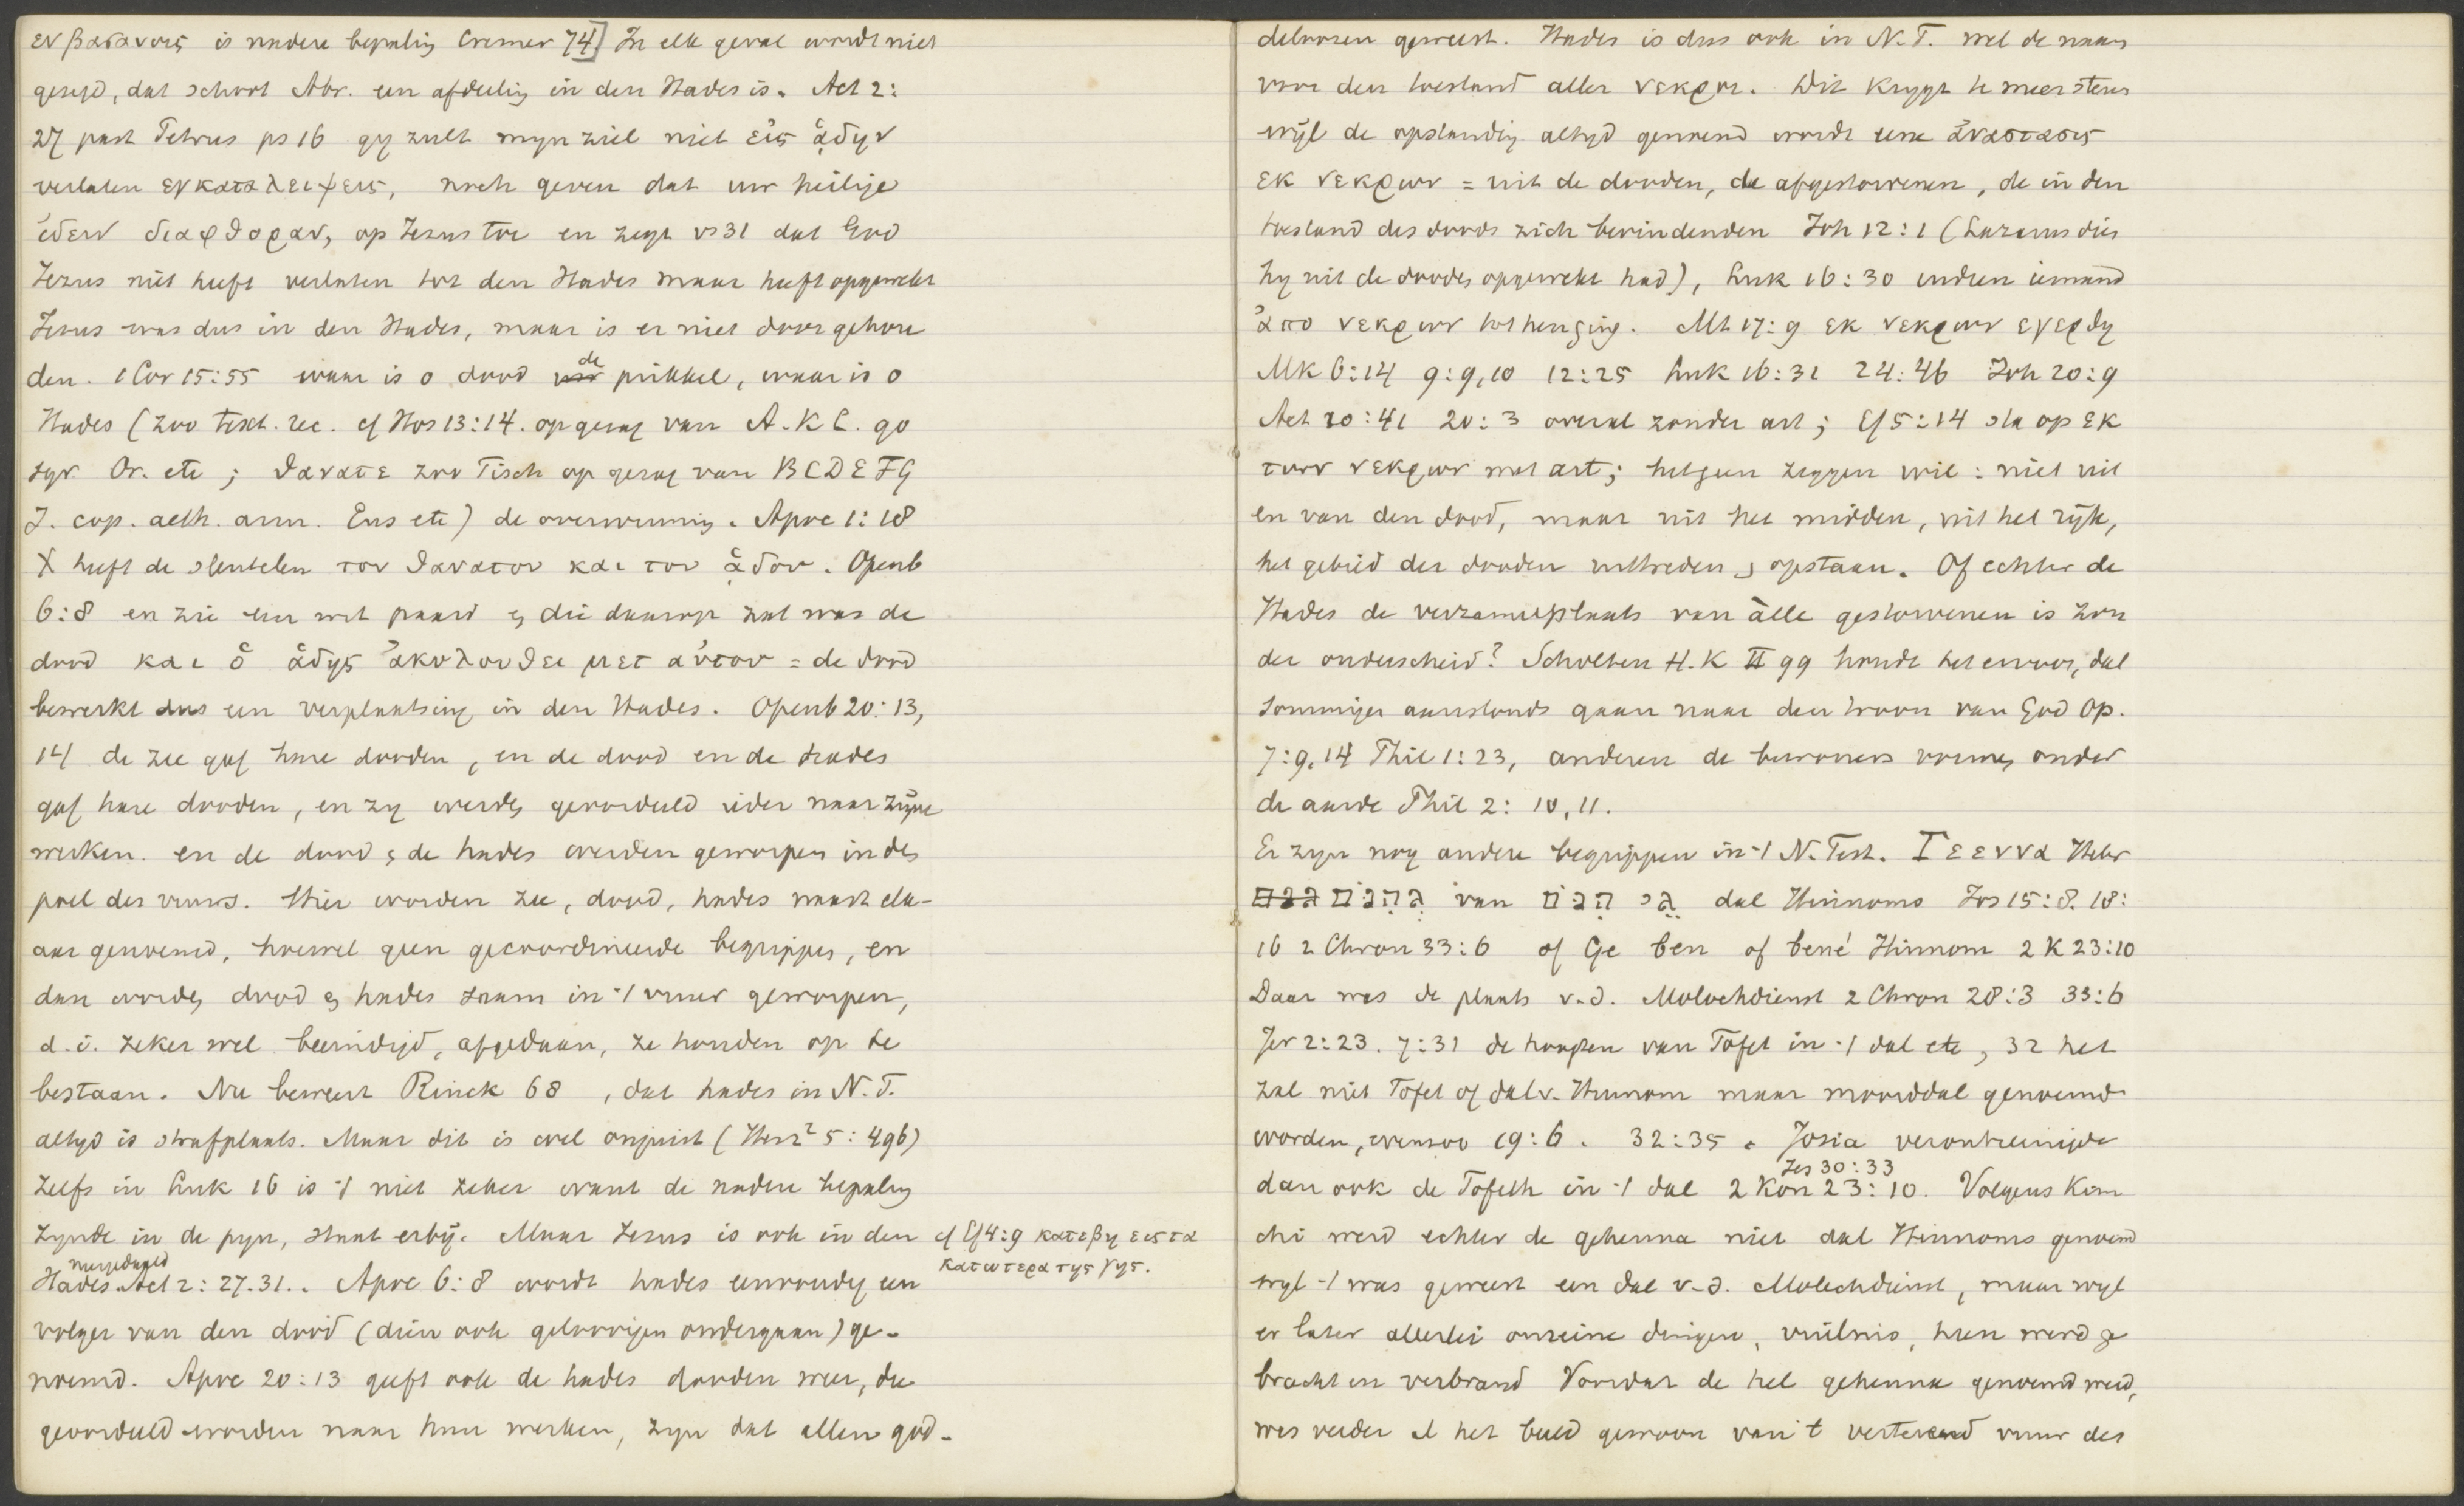 εν βασανοις is nadere bepaling Cremer 74] In elk geval wordt niet
gezegd, dat schoot Abr. een afdeeling in den Hades is. Act 2:
27 past Petrus ps 16 gy zult myn ziel niet εἰς ᾅδην
verlaten ενκαταλειψεις, noch geven dat uw heilige
ἰδειν διαφθοραν, op Jezus toe en zegt vs 31 dat God
Jezus niet heeft verlaten tot den Hades maar heeft opgewekt
Jesus was dus in den Hades, maar is er niet door gehou
den. 1 Cor 15:55 waar is o dood de prikkel, waar is o
Hades (zoo text. rec. cf Hos 13:14. op gezag van A. K L. go
syr. Or. etc; θανατε zoo Tisch op gezag van B C D E F G
I. cop. aeth. arm. Eus etc) de overwinning. Apoc 1:18
X heeft de sleutelen του θανατου και του ᾅδου. Openb
6:8 en zie een wit paard en die daarop zat was de
dood και ὁ ᾅδης ἀκολουθει μετ αὐτου = de dood
bewerkt dus een verplaatsing in den Hades. Openb 20:13,
14 de zee gaf hare dooden, en de dood en de hades
gaf hare dooden, en zy werden geoordeeld ieder naar zijne
werken. en de dood en de hades werden geworpen in des
poel des vuurs. Hier worden zee, dood, hades naast elk-
aar genoemd, hoewel geen gecoordineerde begrippen, en
dan worden dood en hades saam in 't vuur geworpen,
d.i. zeker wel beeindigd, afgedaan, ze houden op te
bestaan. Nu beweert Rinck 68 , dat hades in N.T.
altyd is strafplaats. Maar dit is wel onjuist (Herz² 5:496)
Zelfs in Luk 16 is 't niet zeker want de nadere bepaling
zynde in de pyn, staat erbij. Maar Jezus is ook in den
cf Ef 4:9 κατεβη εις τα
κατωτερα της γης.
nergedaald
Hades Act 2:27.31.. Apoc 6:8 wordt hades eenvoudig een
volger van den dood (dien ook geloovigen ondergaan) ge-
noemd. Apoc 20:13 geeft ook de hades dooden weer, die
geoordeeld worden naar hun werken, zyn dat allen god-
deloozen geweest. Hades is dus ook in N.T. wel de naam
voor den toestand aller νεκροι. Dit krygt te meer steun
wijl de opstanding altyd genoemd wordt eene ἀναστασις
εκ νεκρων = uit de dooden, de afgestorvenen, de in den
toestand des doods zich bevindenden Joh 12:1 (Lazarus dien
hy uit de dooden opgewekt had), Luk 16:30 indien iemand
ἀπο νεκρων tot hen ging. Mt 17:9 εκ νεκρων εγερθη
Mk 6:14 9:9,10 12:25 Luk 16:31 24:46 Joh 20:9
Act 10:41 20:3 overal zonder art; Ef 5:14 sta op εκ
των νεκρων met art; hetgeen zeggen wil: niet uit
en van den dood, maar uit het midden, uit het rijk,
het gebied der dooden uittreden, opstaan. Of echter de
Hades de verzamelplaats van àlle gestorvenen is zon
der onderscheid? Scholten H.K II 99 houdt het ervoor, dat
sommigen aanstonds gaan naar den troon van God Op.
7:9,14 Phil 1:23, anderen de bewoners vormen onder
de aarde Phil 2:10,11.
Er zyn nog andere begrippen in 't N. Test. Γεεννα Hebr
גֵהִנֹם van גֵי הִנֹם dal Hinnoms Jos 15:8. 18:
16 2 Chron 33:6 of Ge ben of bené Hinnom 2 K 23:10
Daar was de plaats v.d. Molochdienst 2 Chron 28:3 33:6
Jer 2:23. 7:31 de hoogten van Tofet in 't dal etc, 32 het
zal niet Tofet of dal v. Hinnom maar moorddal genoemd
worden, evenzoo 19:6. 32:35. Josia verontreinigde
Jes 30:33
dan ook de Tofeth in 't dal 2 Kon 23:10. Volgens Kim
chi werd echter de gehenna niet dal Hinnoms genoemd
wyl 't was geweest een dal v.d. Molechdienst, maar wyl
er later allerlei onreine dingen, vuilnis, heen werd ge
bracht en verbrand Voordat de hel gehenna genoemd werd,
was verder al het beeld gewoon van 't verterend vuur des